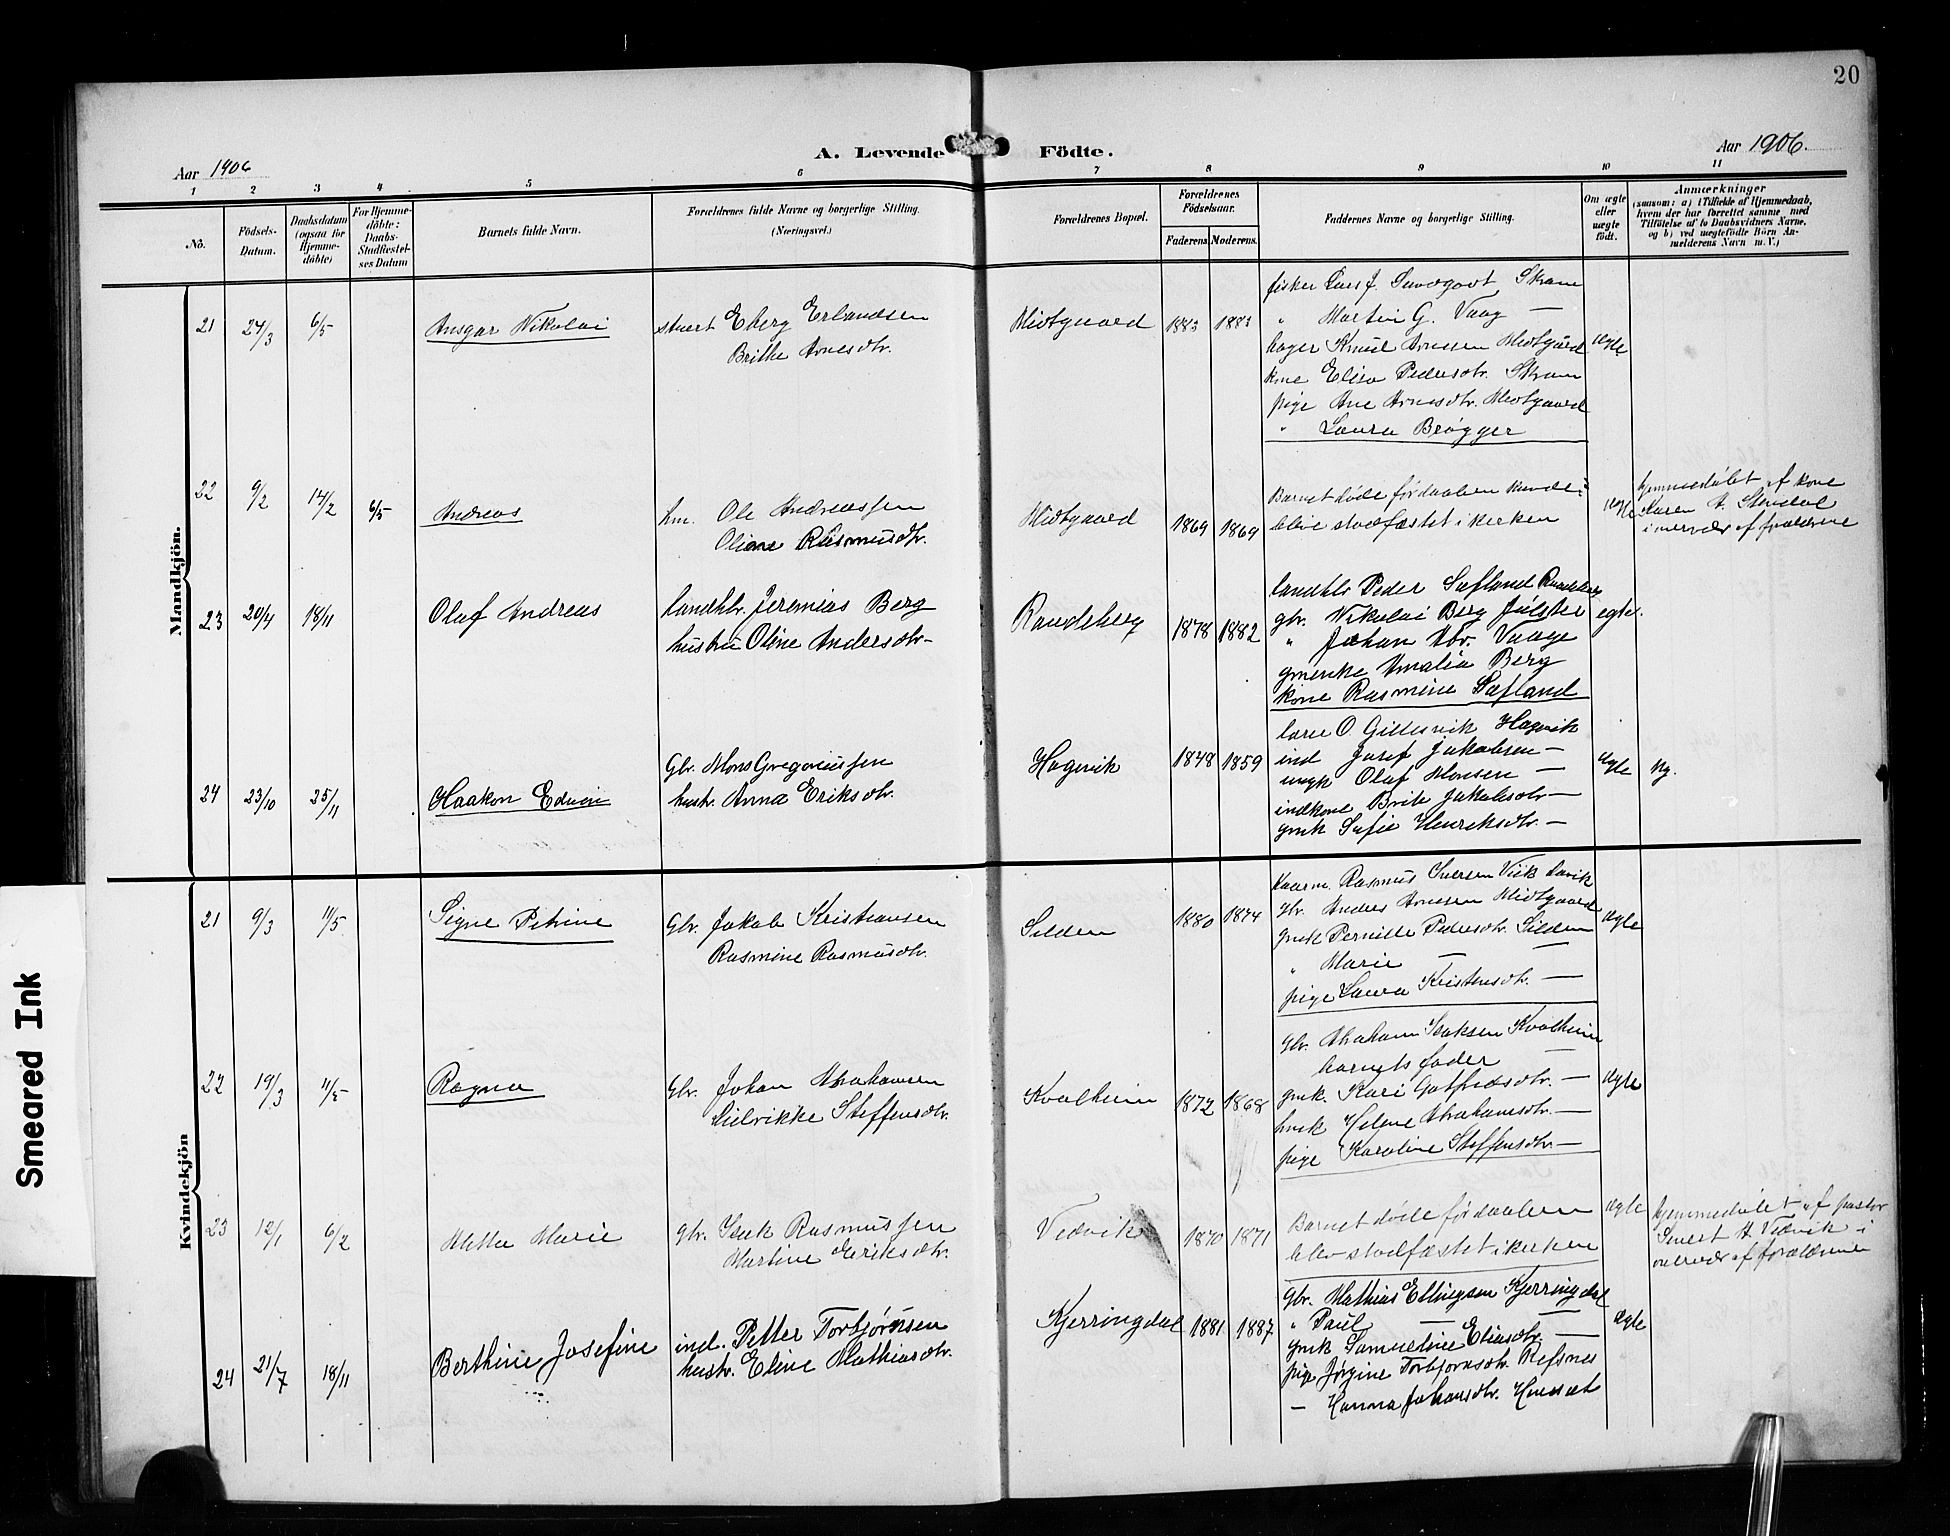 20
A. Levende Födte.
Aar 1906
Aar 1906.
1 2 3 4 5 6 7 8 9 10 11
No.
Födsels-Datum.
Daabsdatum (ogsaa for Hjemme-döbte)
For Hjemme-döbte: Daabs-Stadfæstel-ses Datum
Barnets fulde Navn.
Forældrenes fulde Navne og borgerlige Stilling.
(Næringsvei.)
Forældrenes Bopæl.
Forældrenes Födselsaar.
Faderens. Moderens.
Faddernes Navne og borgerlige Stilling.
Om ægte eller uægte födt.
Anmærkninger
(saasom: a) i Tilfælde af Hjemmedaab,
hvem der har forrettet samme med
Tilföielse af to Daabsvidners Navne,
og b) ved uægtefödte Börn An-
melderens Navn m. V.)
Mandkjön.
21 24/3 6/5 Ansgar Nikolai
Eberg Erlandsen
Brithe Arnesdtr.
Midtgaard 1883 1883
fisker Lars J. Skram
" Martin G. Vaag —
Knud Arnesen Midtgaard
kone Elisa Pedersdtr. Skram
pige Ane Arnesdtr. Midtgaard
" Laura Brøgger
ægte
22 9/2 14/2 6/5 Andreas
hm. Ole Andreassen
Oliane Rasmusdtr.
Midtgaard 1869 1869
Barnet døde før daaben kunde
blive stadfæstet i kirken
ægte
hjemmedøbt af kone
Karen A.
i overvær af forældrene
23 20/4 18/11 Olaf Andreas
landhdl. Jeremias Berg
hustru Oline Andersdtr-
Raudeberg 1878 1882
landhdl. Peder Sæfland Raudeberg
gbr. Nikolai Berg Jølster
" Johan Abr. Vaage
gmenke Amalia Berg
kone Rasmine Sæfland
egte.
24 23/10 25/11 Haakon Edvin
Gbr. Mons Gregoriussen
hustr. Anna Eriksdtr.
Hagevik 1848 1859
lærer O Gillesvik Hagevik
ind Josef Jakobsen —
ungk Olaf Monsen —
indkone Brit Jakobsdtr —
gmk Sofie Henriksdtr. —
ægte
Kvindekjön
21 9/3 11/5 Signe Petrine
Gbr. Jakob Kristiansen
Rasmine Rasmusdtr.
Silden 1880 1874
Rasmus Iversen Viik Davik
Gbr. Andres Arnesen Midtgaard
gmk Pernille Pedersdtr. Silden
" Marie — —
pige Laura Kristensdtr. —
ægte
22 19/3 11/5 Ragna
Gbr. Johan Abrahamsen
Silvikke Steffensdtr.
Kvalheim 1872 1868
Gbr. Abraham Isaksen Kvalheim
barnets fader —
gmk. Kari Gotfredsdtr. —
Helene Abrahamsdtr. —
pige Karoline Steffensdtr. —
ægte
23 12/1 6/2 Mette Marie
Gbr. Isak Rasmussen
Martine Eriksdtr.
Vedvik 1870 1871
Barnet døde før daaben
blev stadfæstet i kirken
ægte
hjemmedøbt af
Sivert A. Vedvik i
overvær af forældrene
24 21/7 18/11 Berthine Josefine
ind. Petter Torbjørnsen
hustr. Eline Mathiasdtr.
Kjerringdal 1881 1887
Gbr. Mathias Ellingsen Kjerringdal
" Paul — —
gmk Samueline Eliasdtr. —
pige Jørgine Torbjørnsdtr. Refsnes
— Hanna Johansdtr.
ægte
Smeared Ink